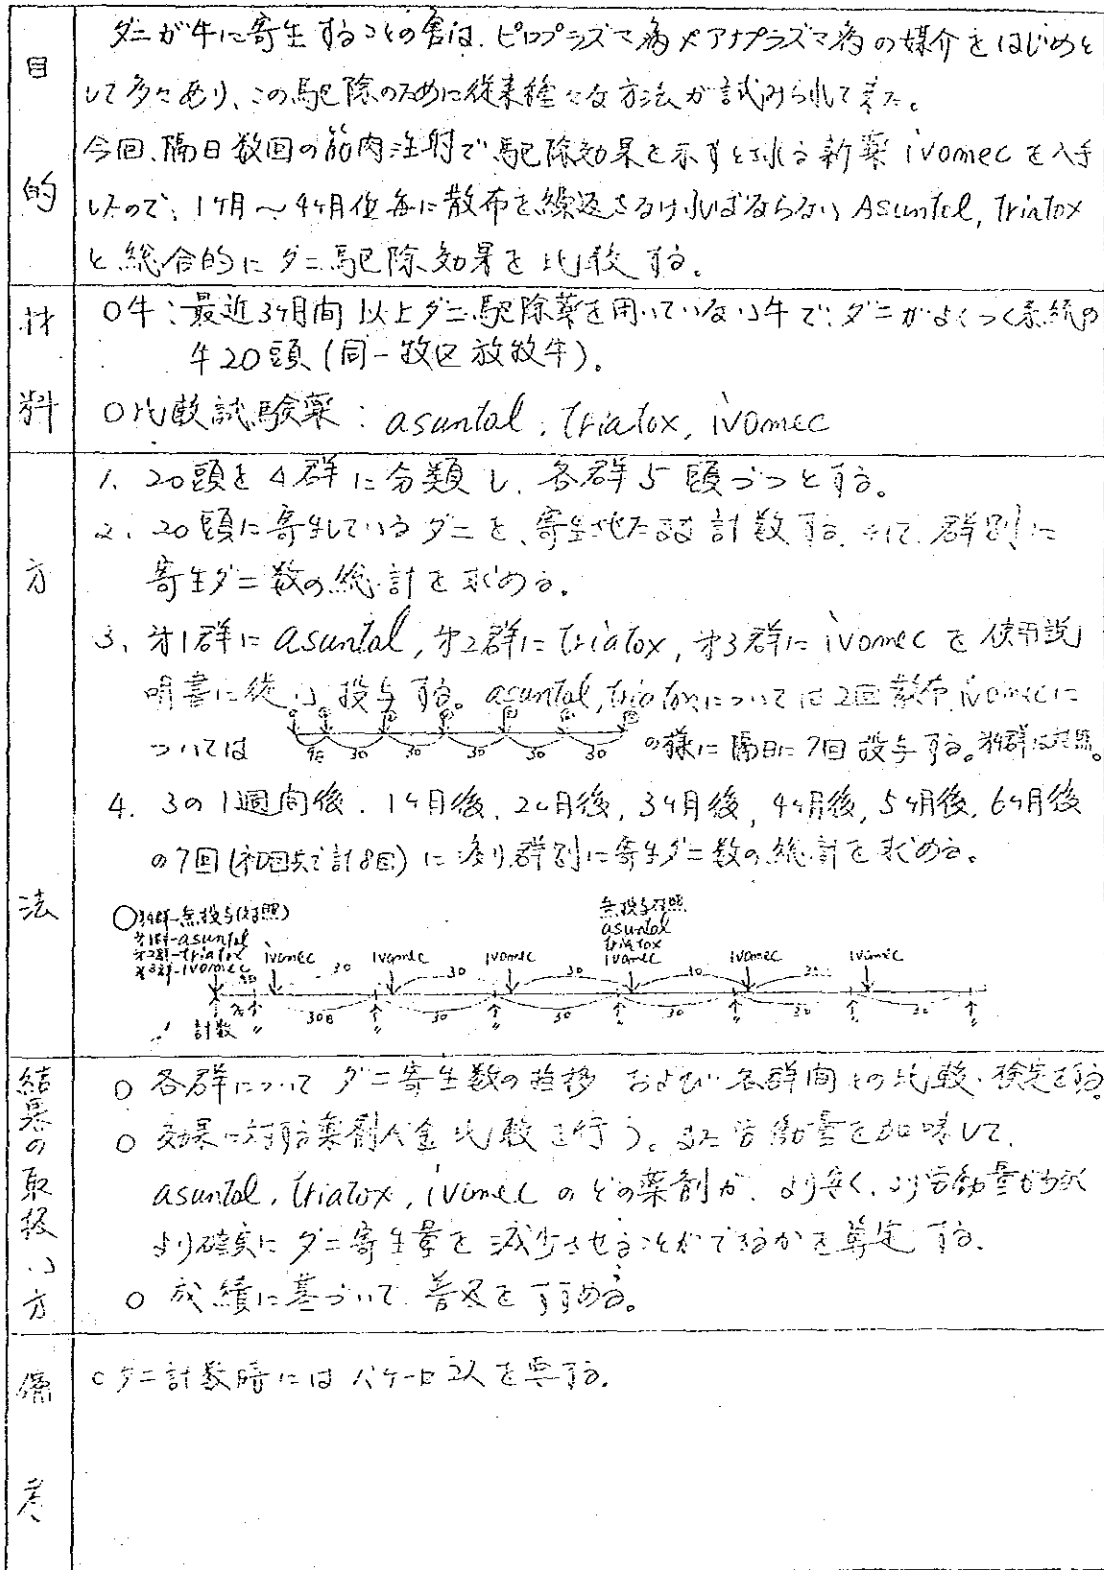 目的
ダニが牛に寄生することの害は、ピロプラズマ病やアナプラズマ病の媒介をはじめと
して多々あり、この駆除のために従来種々な方法が試みられて来た。
今回、隔日数回の筋肉注射で駆除効果を示すと云われる新薬 ivomec を入手
したので、1ケ月〜4ケ月位毎に散布を繰返さなければならない Asuntol, triatox
と総合的にダニ駆除効果を比較する。
材料
○牛:最近3ケ月間以上ダニ駆除薬を用いていない牛で、ダニがよくつく系統の
牛20頭(同一牧区放牧牛)。
○比較試験薬:asuntol, triatox, ivomec
方法
1. 20頭を4群に分類し、各群5頭づつとする。
2. 20頭に寄生しているダニを、寄生せたまま計数する。群別に
寄生ダニ数の総計を求める。
3. 才1群に asuntol, 才2群に triatox, 才3群に ivomec を使用説
明書に従い投与する。asuntol, triatoxについては2回散布、ivomecに
ついては
30 30 30 30 30
の様に隔日に7回投与する。才4群は対照。
4. 3の1週間後、1ケ月後、2ケ月後、3ケ月後、4ケ月後、5ケ月後、6ケ月後
の7回(初回点で計8回)に渉り群別に寄生ダニ数の総計を求める。
○才4群-無投与(対照)
無投与対照
才1群-asuntol
asuntol
才2群-triatox
triatox
才3群-ivomec ivomec ivomec ivomec ivomec ivomec ivomec
30 30 30
30日 30 30 30 30 30
計数 〃 〃 〃 〃 〃 〃 〃
結果の取扱い方
○各群についてダニ寄生数の推移および各群間との比較、検定をする。
○効果に対する薬剤代金比較を行う。また労働量を加味して、
asuntol, triatox, ivomec のどの薬剤が、より安く、より労働量が少く
より確実にダニ寄生量を減少させることができるかを算定する。
○成績に基づいて普及をすすめる。
備考
○ダニ計数時にはバケーロ2人を要する。